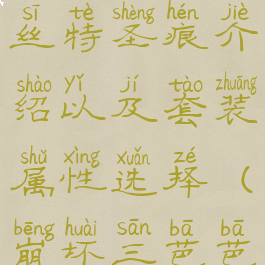 sī tè shèng hén jiè
丝特圣痕介
shào yǐ jí tào zhuāng
绍以及套装
shǔ xìng xuǎn zé
属性选择（
bēng huài sān bā bā
崩坏三芭芭